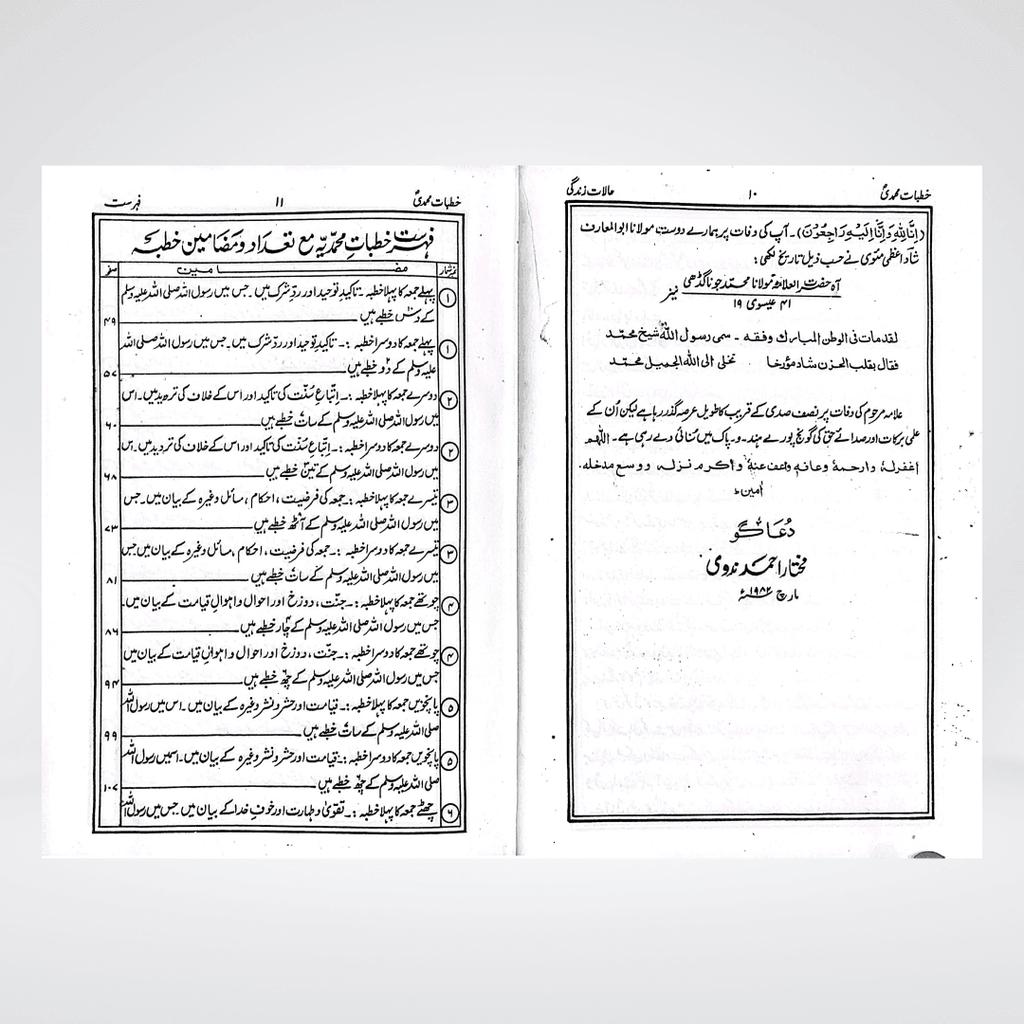 خطبات محمدیؐ ۱۰ حالات زندگی
(اِنَّا لِلّٰہِ وَاِنَّا اِلَیْہِ رَاجِعُوْنَ)۔ آپ کی وفات پر ہمارے دوست مولانا ابوالمعارف
شاد اعظمی مئوی نے حسب ذیل تاریخ لکھی:
آہ حضرت العلامہ مولانا محمد جوناگڈھی نیز
۴۱ عیسوی ۱۹
لقدمات فی الوطن المبارک وفقہ ۔ سمی رسول اللہ شیخ محمّد
فقال بقلب الحزن شاد مؤرخا تخلی الی اللہ الجمیل محمّد
علامہ مرحوم کی وفات پر نصف صدی کے قریب کا طویل عرصہ گذر رہا ہے لیکن اُن کے
علمی برکات اور صدائے حق کی گونج پورے ہند ۔ و پاک میں سُنائی دے رہی ہے۔ اللھم
اغفرلہٗ وارحمہٗ وعافہ واعف عنہٗ واکرم نزلہ ووسع مدخلہ
اٰمین
دُعا گو
مختار احمد ندوی
مارچ ۱۹۸۲ء
خطبات محمدیؐ ۱۱ فہرست
فہرست خطباتِ محمدیّہ مع تعداد و مضامین خطبہ
نمبر شمار مضامین صفحہ
۱ پہلے جمعہ کا پہلا خطبہ ۔ تاکیدِ توحید اور ردِّ شرک میں۔ جس میں رسول اللہ صلی اللہ علیہ وسلم
کے دسؔ خطبے ہیں ۴۹
۱ پہلے جمعہ کا دوسرا خطبہ :۔ تاکیدِ توحید اور ردِّ شرک میں۔ جس میں رسول اللہ صلی اللہ
علیہ وسلم کے دوؔ خطبے ہیں ۵۷
۲ دوسرے جمعہ کا پہلا خطبہ :۔ اِتباعِ سُنّت کی تاکید اور اس کے خلاف کی تردید میں۔ اس
میں رسول اللہ صلی اللہ علیہ وسلم کے ساتؔ خطبے ہیں ۶۰
۲ دوسرے جمعہ کا دوسرا خطبہ :۔ اِتباعِ سُنّت کی تاکید اور اس کے خلاف کی تردید میں۔ اس
میں رسول اللہ صلی اللہ علیہ وسلم کے تینؔ خطبے ہیں ۶۸
۳ تیسرے جمعہ کا پہلا خطبہ :۔ جمعہ کی فرضیت ، احکام ، مسائل وغیرہ کے بیان میں۔ جس
میں رسول اللہ صلی اللہ علیہ وسلم کے آٹھؔ خطبے ہیں ۷۳
۳ تیسرے جمعہ کا دوسرا خطبہ :۔ جمعہ کی فرضیت ، احکام ، مسائل وغیرہ کے بیان میں جس
میں رسول اللہ صلی اللہ علیہ وسلم کے ساتؔ خطبے ہیں ۸۱
۴ چوتھے جمعہ کا پہلا خطبہ :۔ جنّت ، دوزخ اور احوال و اہوالِ قیامت کے بیان میں۔
جس میں رسول اللہ صلی اللہ علیہ وسلم کے چارؔ خطبے ہیں ۸۶
۴ چوتھے جمعہ کا دوسرا خطبہ :۔ جنّت ، دوزخ اور احوال و اہوالِ قیامت کے بیان میں
جس میں رسول اللہ صلی اللہ علیہ وسلم کے چھؔ خطبے ہیں ۹۴
۵ پانچویں جمعہ کا پہلا خطبہ :۔ قیامت اور حشر و نشر وغیرہ کے بیان میں۔ اس میں رسول اللہ
صلی اللہ علیہ وسلم کے ساتؔ خطبے ہیں ۹۹
۵ پانچویں جمعہ کا دوسرا خطبہ :۔ قیامت اور حشر و نشر وغیرہ کے بیان میں۔ اسمیں رسول اللہ
صلی اللہ علیہ وسلم کے چھؔ خطبے ہیں ۱۰۷
۶ چھٹے جمعہ کا پہلا خطبہ :۔ تقویٰ و طہارت اور خوفِ خدا کے بیان میں۔ جس میں رسول اللہ